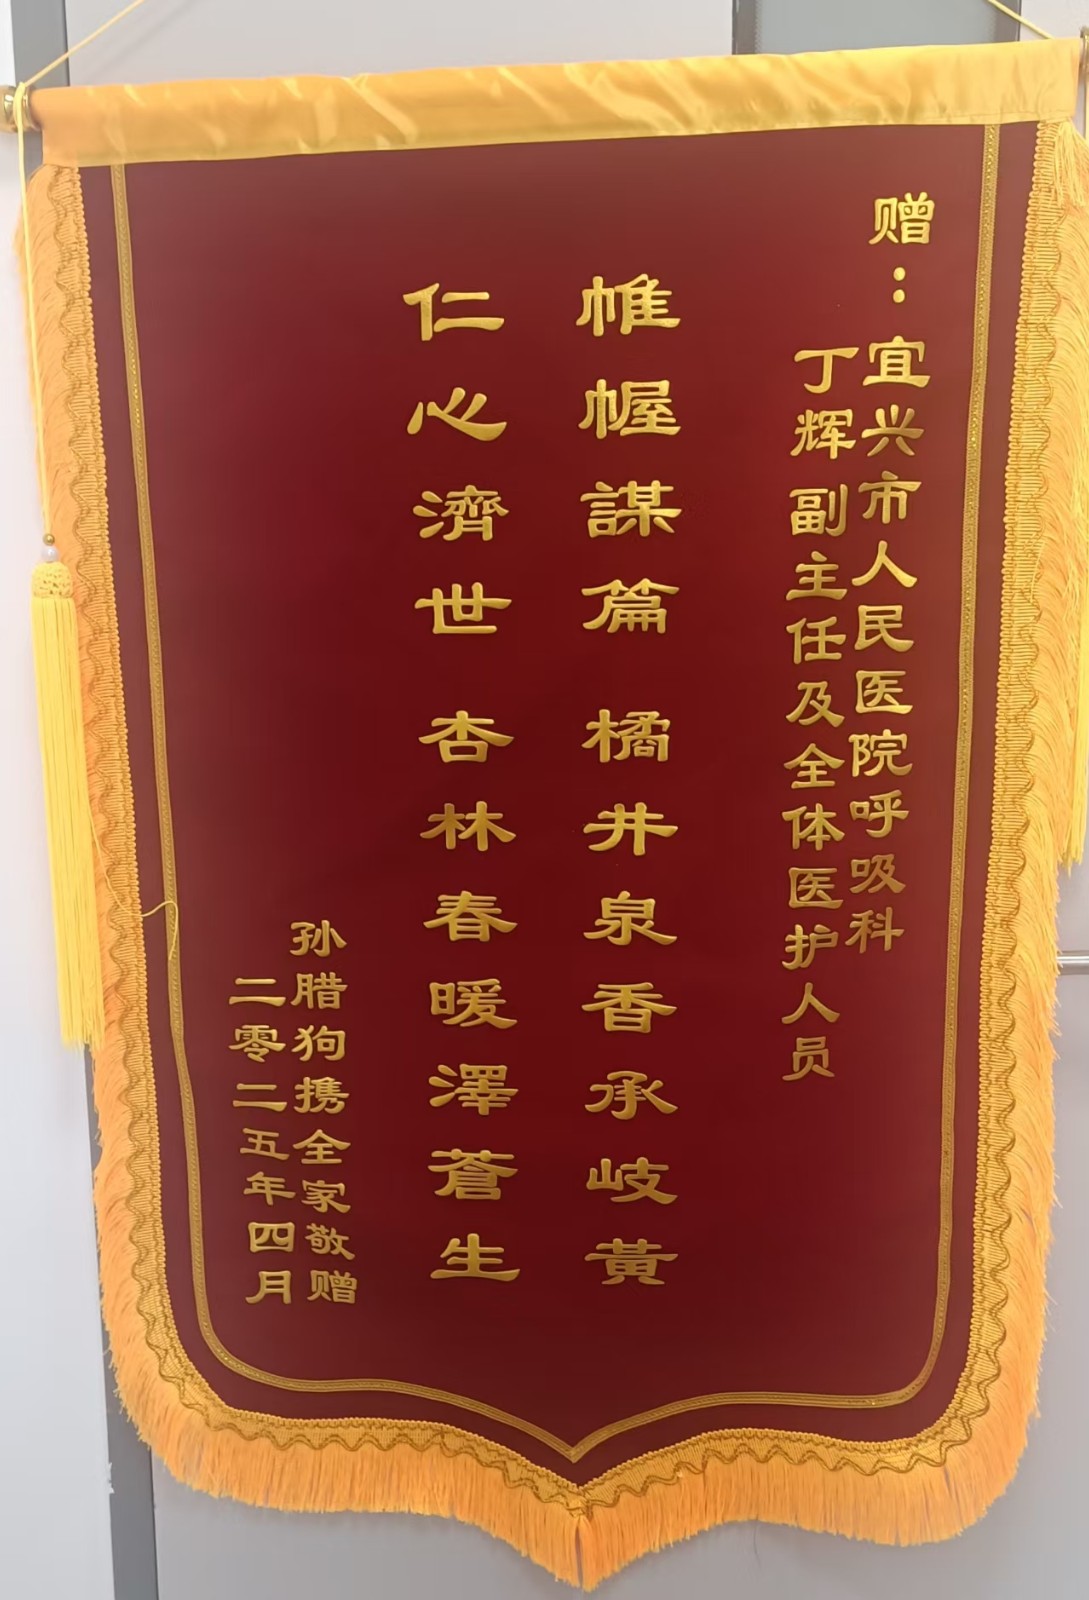 赠：宜兴市人民医院呼吸科
丁辉 副主任及全体医护人员
帷幄謀篇 橘井泉香承岐黃
仁心濟世 杏林春暖澤蒼生
孙腊狗携全家敬赠
二零二五年四月